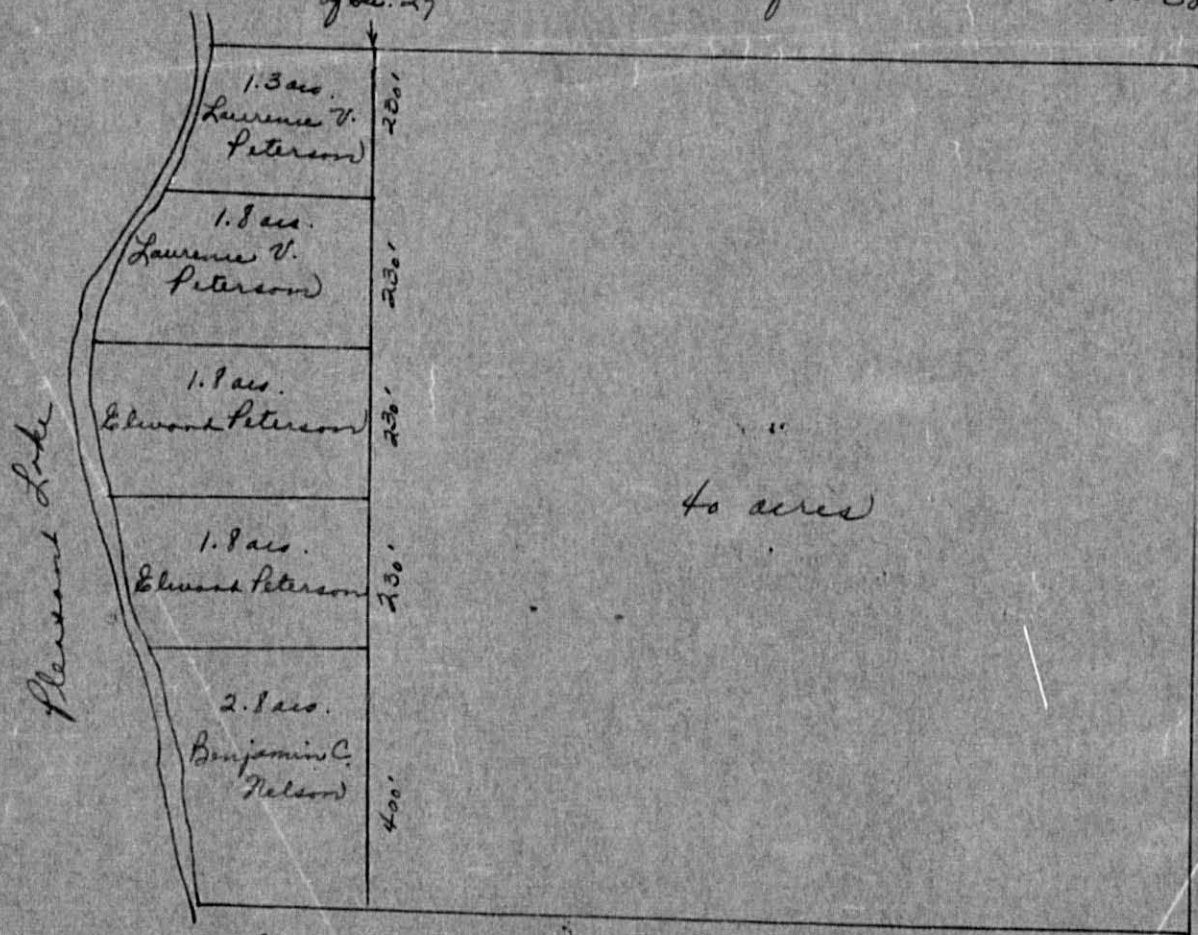 of Sec. 27
1.3 acs.
Laurence V.
Peterson
230'
1.8 acs.
Laurence V.
Peterson
230'
1.8 acs.
Elwood Peterson
230'
1.8 acs.
Elwood Peterson
230'
2.8 acs.
Benjamin C.
Nelson
400'
Pleasant Lake
40 acres